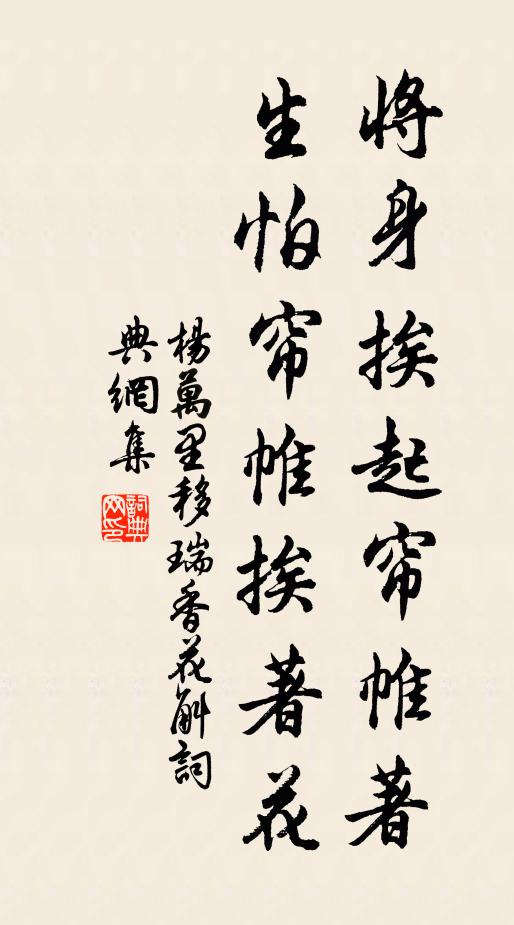 將身挨起帘帷著
生怕帘帷挨著花
楊萬里移瑞香花斛詞
典網集
詞典網印